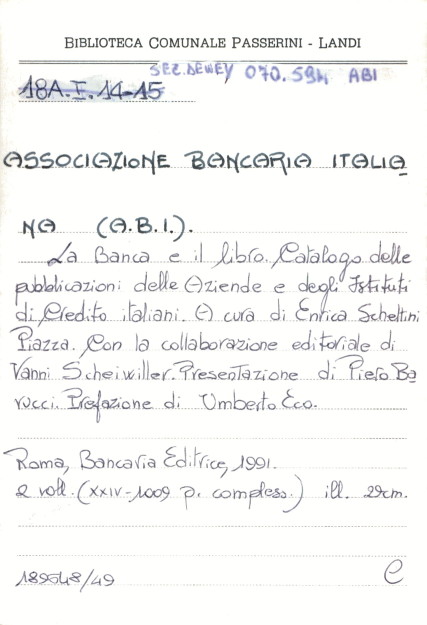 BIBLIOTECA COMUNALE PASSERINI - LANDI
SEZ. DEWEY 070.594 ABI
18A.I.14-15
ASSOCIAZIONE BANCARIA ITALIA
NA (A.B.I.).
La Banca e il libro. Catalogo delle
pubblicazioni delle Aziende e degli Istituti
di Credito italiani. A cura di Enrica Scheltini
Piazza. Con la collaborazione editoriale di
Vanni Scheiwiller. Presentazione di Piero Ba
rucci. Prefazione di Umberto Eco.
Roma, Bancaria Editrice, 1991.
2 voll. (XXIV-1009 p. compless.) ill. 29cm.
189548/49 C